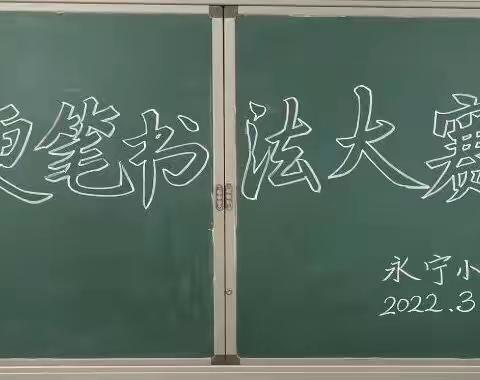 硬笔书法大赛
永宁小
2022.3